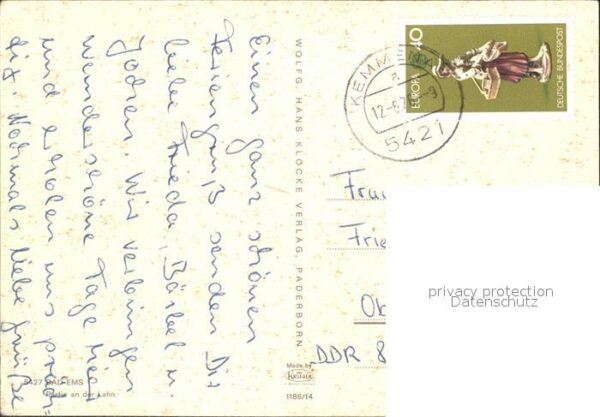 Einen ganz schönen
Feriengruß senden Dir
liebe Frieda, Bärbel u.
Jochen. Wir verbringen
wunderschöne Tage hier
und erholen uns präch-
tig. Nochmals liebe Grüße
5427 BAD EMS
Partie an der Lahn
WOLFG. HANS KLOCKE VERLAG, PADERBORN
Made by
Krüger
1186/14
KEMMENAU
a
12.-6.7
-9
5421
EUROPA 40
DEUTSCHE BUNDESPOST
Frau
Frie
Ob
DDR 8
privacy protection
Datenschutz